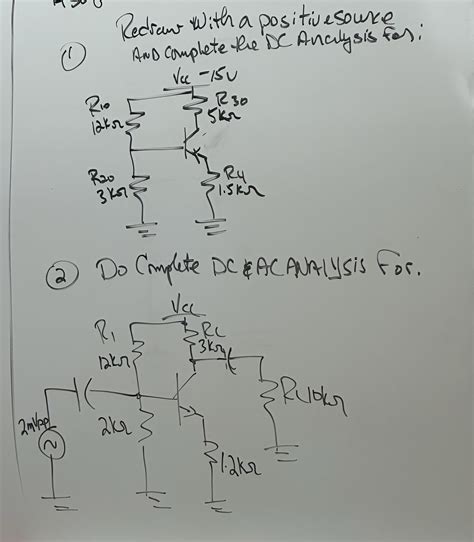 Redraw with a positive source
AND Complete the DC Analysis for:
①
Vcc -15V
R10
12kΩ
R30
5kΩ
R20
3kΩ
R4
1.5kΩ
② Do Complete DC & AC ANALYSIS For.
Vcc
R1
12kΩ
RC
3kΩ
2mVpp
2kΩ
RL10kΩ
1.2kΩ